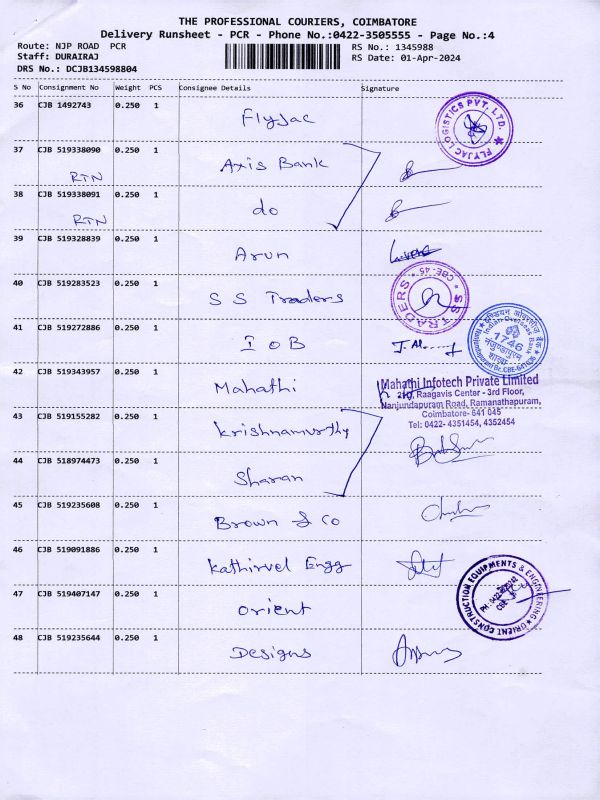 THE PROFESSIONAL COURIERS, COIMBATORE
Delivery Runsheet - PCR - Phone No.:0422-3505555 - Page No.:4
Route: NJP ROAD PCR
RS No.: 1345988
Staff: DURAIRAJ
RS Date: 01-Apr-2024
DRS No.: DCJB134598804
S No Consignment No Weight PCS Consignee Details Signature
36 CJB 1492743 0.250 1 Flyjac
FLYJAC LOGISTICS PVT. LTD.
37 CJB 519338090 0.250 1 Axis Bank
RTN
38 CJB 519338091 0.250 1 do
RTN
39 CJB 519328839 0.250 1 Arun
40 CJB 519283523 0.250 1 S S Traders
SS TRADERS * CBE-45 *
41 CJB 519272886 0.250 1 I O B
Indian Overseas Bank
1746
42 CJB 519343957 0.250 1 Mahathi
Mahathi Infotech Private Limited
Raagavis Center - 3rd Floor,
Nanjundapuram Road, Ramanathapuram,
Coimbatore- 641 045
Tel: 0422- 4351454, 4352454
43 CJB 519155282 0.250 1 Krishnamurthy
44 CJB 518974473 0.250 1 Sharan
45 CJB 519235608 0.250 1 Brown & Co
46 CJB 519091886 0.250 1 Kathirvel Engg
47 CJB 519407147 0.250 1 Orient
ORIENT CONSTRUCTION EQUIPMENTS & ENGINEERING
48 CJB 519235644 0.250 1 Designs